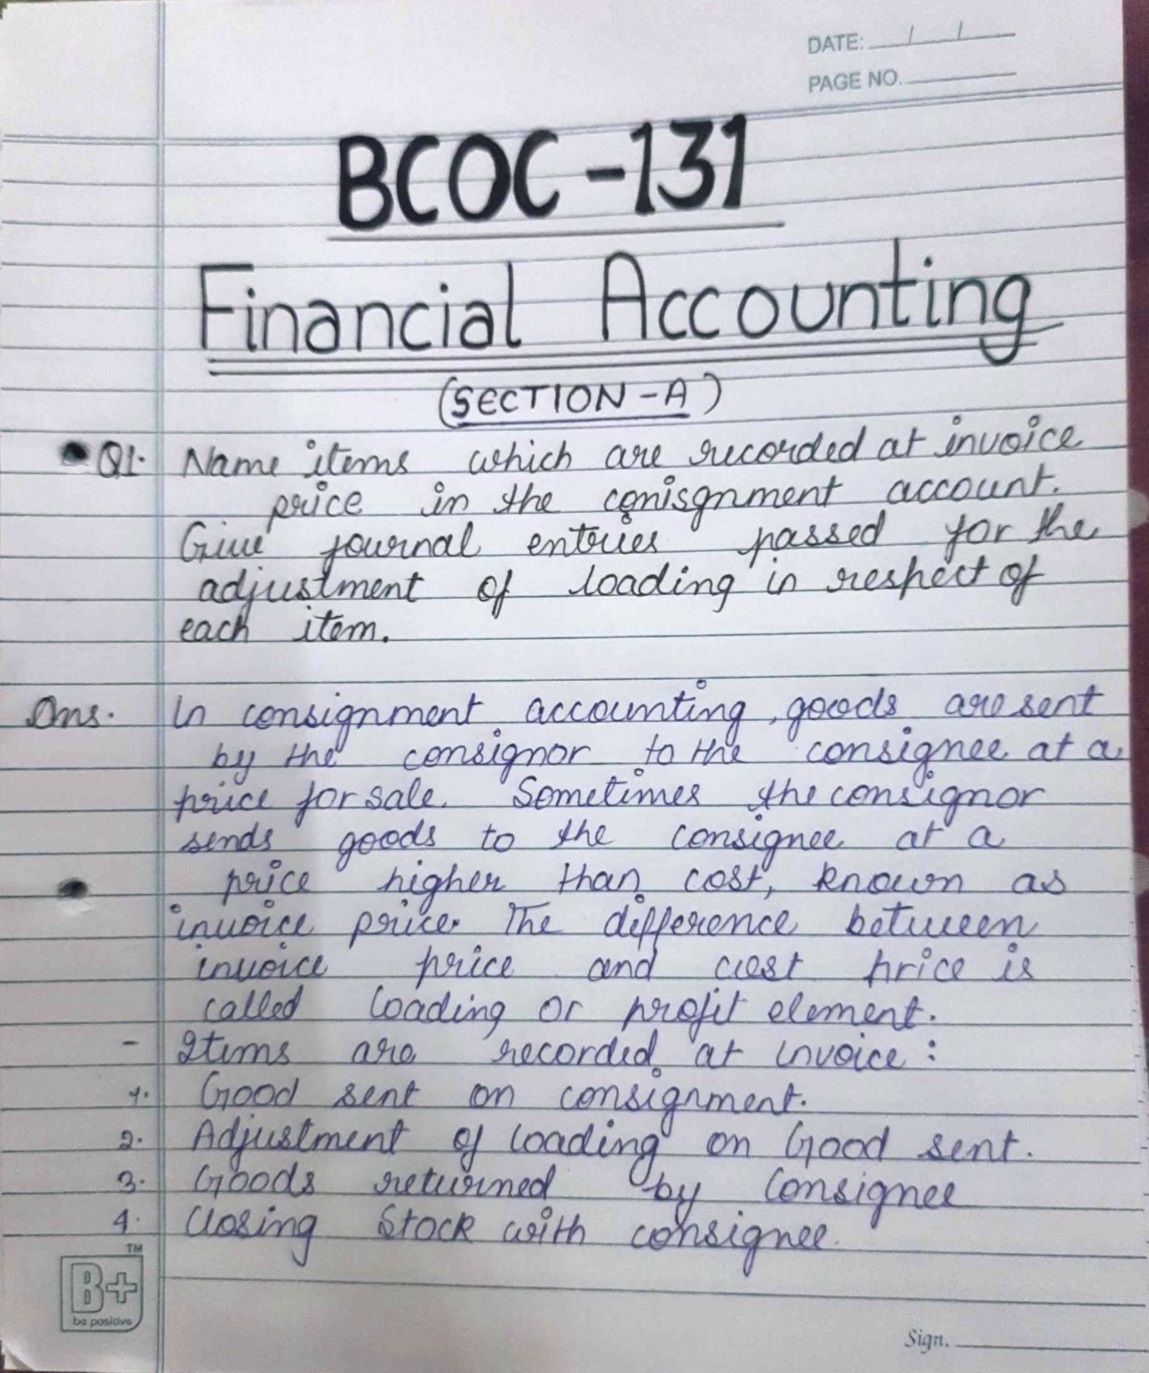 DATE:
PAGE NO.
BCOC-131
Financial Accounting
(SECTION-A)
Q1. Name items which are recorded at invoice
price in the conisgnment account.
Give journal entries passed for the
adjustment of loading in respect of
each item.
Ans. In consignment accounting, goods are sent
by the consignor to the consignee at a
price for sale. Sometimes the consignor
sends goods to the consignee at a
price higher than cost, known as
invoice price. The difference between
invoice price and cost price is
called loading or profit element.
- Items are recorded at invoice:
1. Good sent on consignment.
2. Adjustment of loading on Good sent.
3. Goods returned by Consignee
4. Closing Stock with consignee.
B+ TM
be positive
Sign.